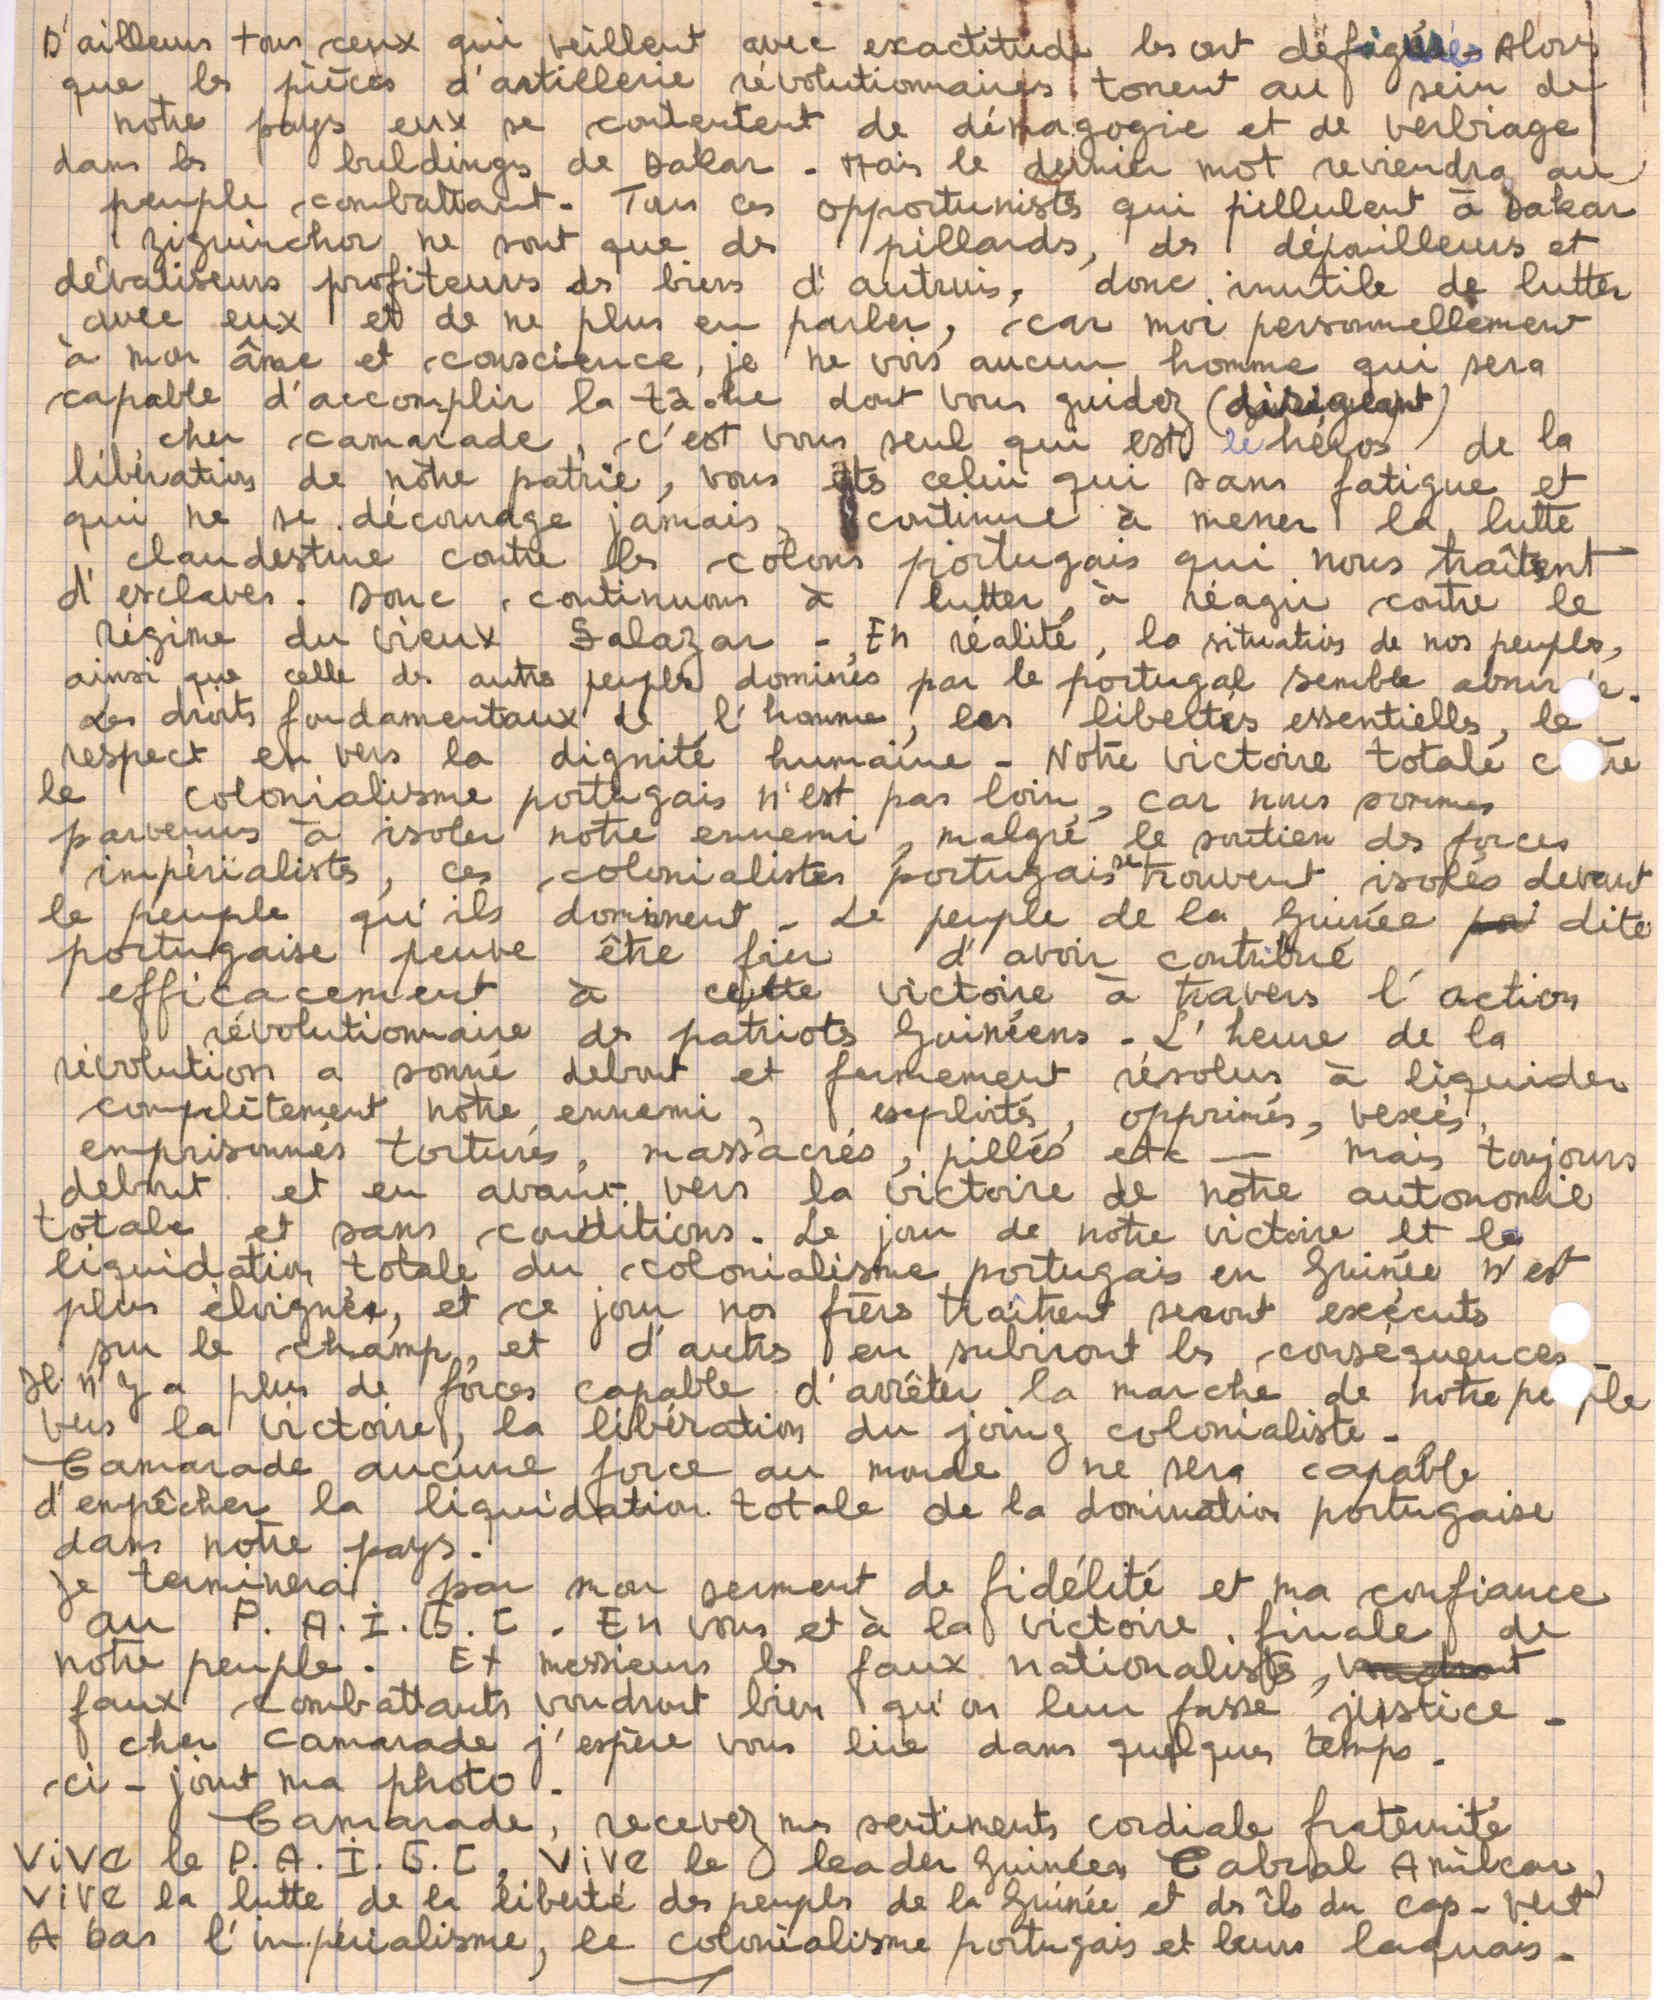 D'ailleurs tous ceux qui veillent avec exactitude les ont défigurés - Alors
que les pièces d'artillerie révolutionnaires tonent au sein de
notre pays eux se contentent de démagogie et de verbiage
dans les buldings de Dakar - Mais le dernier mot reviendra au
peuple combattant - Tous ces opportunists qui pillulent à Dakar
Ziguinchor ne sont que des pillards, des dépouilleurs et
dévaliseurs profiteurs des biens d'autruis, donc inutile de lutter
avec eux et de ne plus en parler, car moi personnellement
à mon âme et conscience, je ne vois aucun homme qui sera
capable d'accomplir la tâche dont vous guidez (dirigeant)
cher camarade, c'est vous seul qui est le héros de la
libération de nôtre patrie, vous êtes celui qui sans fatigue et
qui ne se décourage jamais, continue à mener la lutte
clandestine contre les colons portugais qui nous traîtent
d'esclaves. Donc continuons à lutter, à réagir contre le
régime du vieux Salazar - En réalité, la situation de nos peuples,
ainsi que celle des autres peuples dominés par le portugal semble
Les droits fondamentaux de l'homme, les libertés essentielles, le
respect en vers la dignité humaine - Notre victoire totale c tre
le colonialisme portugais n'est pas loin, car nous sommes
parvenus à isoler notre ennemi, malgré le soutien des forces
impérialistes, ces colonialistes portugais se trouvent isolés devant
le peuple qu'ils dominnent - Le peuple de la Guinée dite
portugaise peuve être fier d'avoir contribué
efficacement à cette victoire à travers l'action
révolutionnaire des patriots Guinéens - L'heure de la
révolution a sonné debout et fermement résolus à liquider
complètement notre ennemi, exploités, opprimés, vexés,
emprisonnés torturés, massacrés, pillés etc — mais toujours
debout et en avant vers la victoire de notre autonomie
totale et sans conditions - Le jour de notre victoire et la
liquidation totale du colonialisme portugais en Guinée n'est
plus éloignée, et ce jour nos frères traîtrent seront exécuts
sur le champ, et d'autres en subiront les conséquences -
Il n'y a plus de forces capable d'arrêter la marche de notre pe ple
vers la victoire, la libération du joing colonialiste -
Camarade aucune force au monde ne sera capable
d'empêcher la liquidation totale de la domination portugaise
dans notre pays.
Je terminerai par mon serment de fidélité et ma confiance
au P. A. I. G. C. En vous et à la victoire finale de
notre peuple. Et messieurs les faux nationalists,
faux combattants voudront bien qu'on leur fasse justice -
cher camarade j'espère vous lire dans quelques temps -
ci - joint ma photo -
Camarade, recevez mes sentiments cordiale fraternité
Vive le P. A. I. G. C, Vive le leader Guinéen Cabral Amilcar,
Vive la lutte de la liberté des peuples de la Guinée et des îles du cap-vert
A bas l'impérialisme, le colonialisme portugais et leurs laquais -